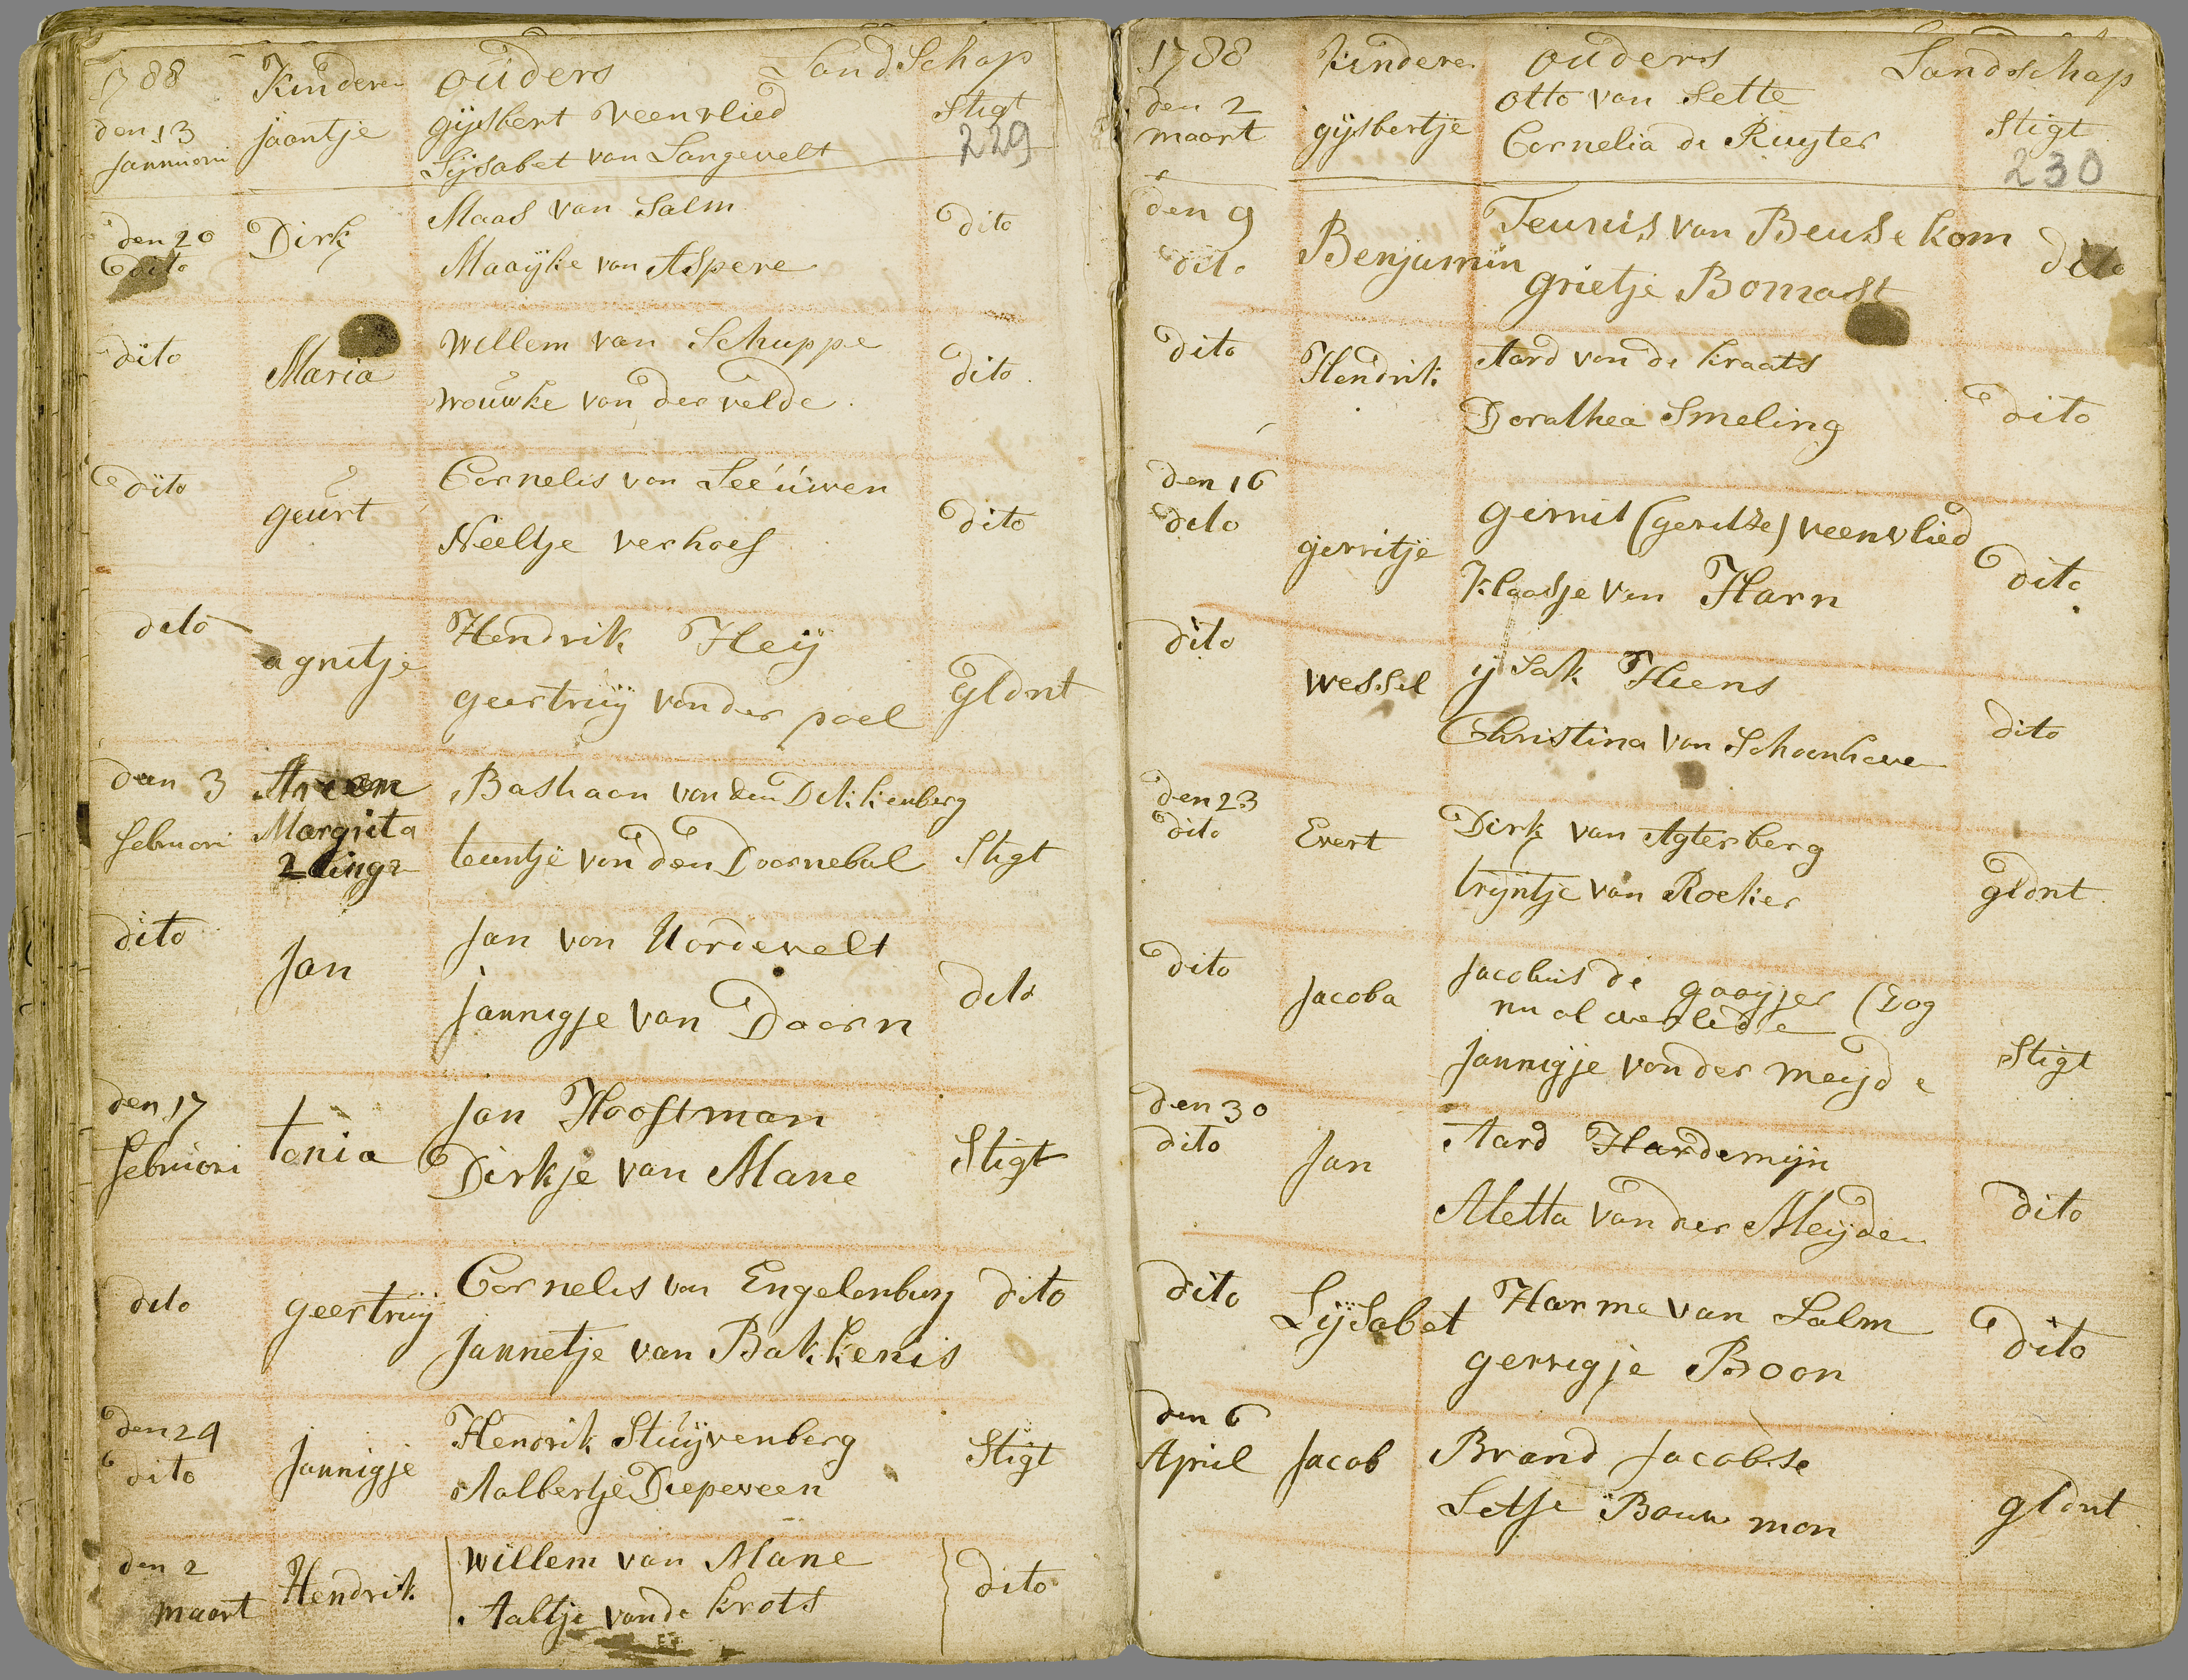 1788 Kinderen ouders LandSchap
den 13 januuori jaantje gijsbert veenvlied Stigt
Lijsabet van Langevelt 229
den 20 dito Dirk Maas van Salm dito
Maaijke van Aspere
dito Maria willem van Schuppe dito
wouwke van der velde
dito geurt Cornelis van Leeuwen dito
Neeltje verhoef
dito agnitje Hendrik Heij gldnt
geertruij vander poel
den 3 februori Margrita Bashaan van den Dikkenberg
2 lingn teuntje van den Doornebal Stigt
dito Jan Jan van Nordevelt dito
jannigje van Doorn
den 17 februori tonia Jan Hooftman Stigt
Dirkje van Mane
dito geertruij Cornelis van Engelenburg dito
jannetje van Bakkenis
den 24 dito Jannigje Hendrik Stuijvenberg Stigt
Aalbertje Diepeveen
den 2 maart Hendrik willem van Mane dito
Aaltje vande krots
1788 kindere ouders Landschap
den 2 maart gijsbertje otto van Sette Stigt
Cornelia de Ruyter 230
den 9 dito Benjamin Teunis van Beusekom dito
grietje Bomast
dito Hendrik Aard van de kraats dito
Dorathea Smeling
den 16 dito gerritje gerrit (geritze) veenvlied dito
klaasje van Harn
dito wessel ijsak Hiens dito
Christina van Schoonhove
den 23 dito Evert Dirk van Agterberg gldnt
trijntje van Roeker
dito Jacoba Jacobus de gaaijer (Dog
nu al overledse
Jannigje vander meijde Stigt
den 30 dito Jan Aard Hardemijn dito
Metta vander Meijden
dito Lijsabet Harme van Salm dito
gerrigje Boon
den 6 April Jacob Brand Jacobse gldnt
Letje Bouw man